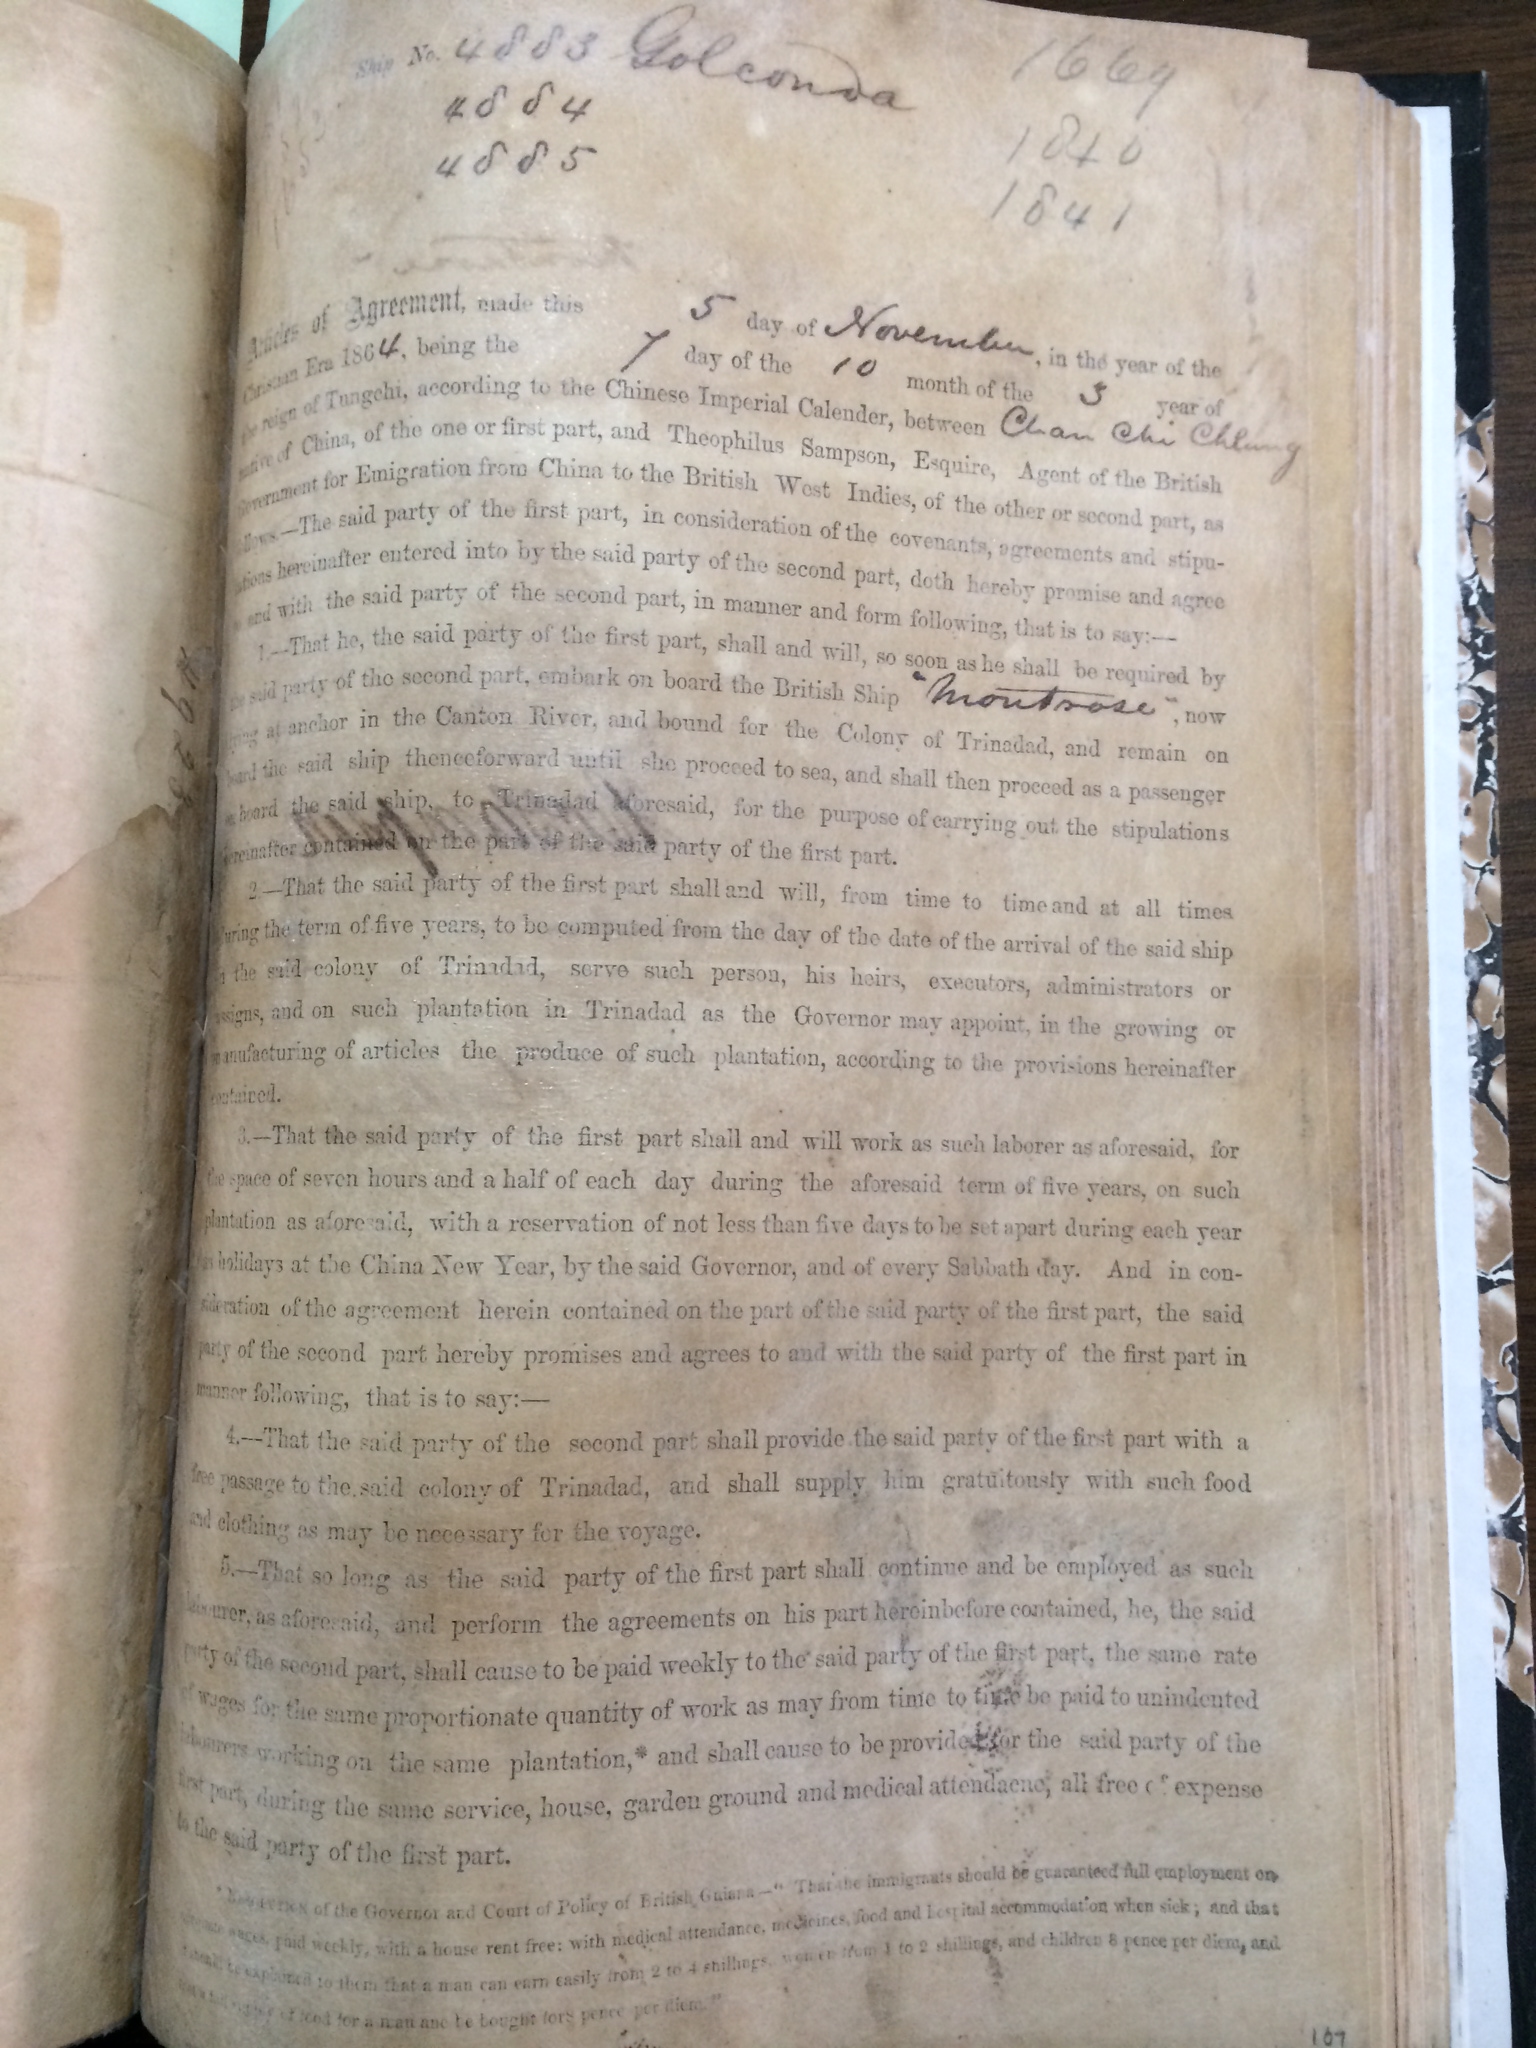 Ship No. 4883 Golconda 1669
4884 1840
4885 1841
Articles of Agreement, made this 5 day of November, in the year of the
Christian Era 1864, being the 7 day of the 10 month of the 3 year of
the reign of Tungchi, according to the Chinese Imperial Calender, between Chan Chi Chlung
native of China, of the one or first part, and Theophilus Sampson, Esquire, Agent of the British
Government for Emigration from China to the British West Indies, of the other or second part, as
follows.—The said party of the first part, in consideration of the covenants, agreements and stipu-
lations hereinafter entered into by the said party of the second part, doth hereby promise and agree
and with the said party of the second part, in manner and form following, that is to say:—
1.—That he, the said party of the first part, shall and will, so soon as he shall be required by
the said party of the second part, embark on board the British Ship "Montrose", now
lying at anchor in the Canton River, and bound for the Colony of Trinadad, and remain on
board the said ship thenceforward until she proceed to sea, and shall then proceed as a passenger
on board the said ship, to Trinadad aforesaid, for the purpose of carrying out the stipulations
hereinafter contained on the part of the said party of the first part.
2.—That the said party of the first part shall and will, from time to time and at all times
during the term of five years, to be computed from the day of the date of the arrival of the said ship
the said colony of Trinadad, serve such person, his heirs, executors, administrators or
assigns, and on such plantation in Trinadad as the Governor may appoint, in the growing or
manufacturing of articles the produce of such plantation, according to the provisions hereinafter
contained.
3.—That the said party of the first part shall and will work as such laborer as aforesaid, for
the space of seven hours and a half of each day during the aforesaid term of five years, on such
plantation as aforesaid, with a reservation of not less than five days to be set apart during each year
as holidays at the China New Year, by the said Governor, and of every Sabbath day. And in con-
sideration of the agreement herein contained on the part of the said party of the first part, the said
party of the second part hereby promises and agrees to and with the said party of the first part in
manner following, that is to say:—
4.—That the said party of the second part shall provide the said party of the first part with a
free passage to the said colony of Trinadad, and shall supply him gratuitously with such food
and clothing as may be necessary for the voyage.
5.—That so long as the said party of the first part shall continue and be employed as such
labourer, as aforesaid, and perform the agreements on his part hereinbefore contained, he, the said
party of the second part, shall cause to be paid weekly to the said party of the first part, the same rate
of wages for the same proportionate quantity of work as may from time to time be paid to unindented
labourers working on the same plantation,* and shall cause to be provided for the said party of the
first part, during the same service, house, garden ground and medical attendacne, all free of expense
to the said party of the first part.
of the Governor and Court of Policy of British Guiana—" That the immigrants should be guaranteed full employment on
wages, paid weekly, with a house rent free: with medical attendance, medicines, food and hospital accommodation when sick; and that
explained to them that a man can earn easily from 2 to 4 shillings, women from 1 to 2 shillings, and children 8 pence per diem, and
of food for a man and be bought for 8 pence per diem."
107